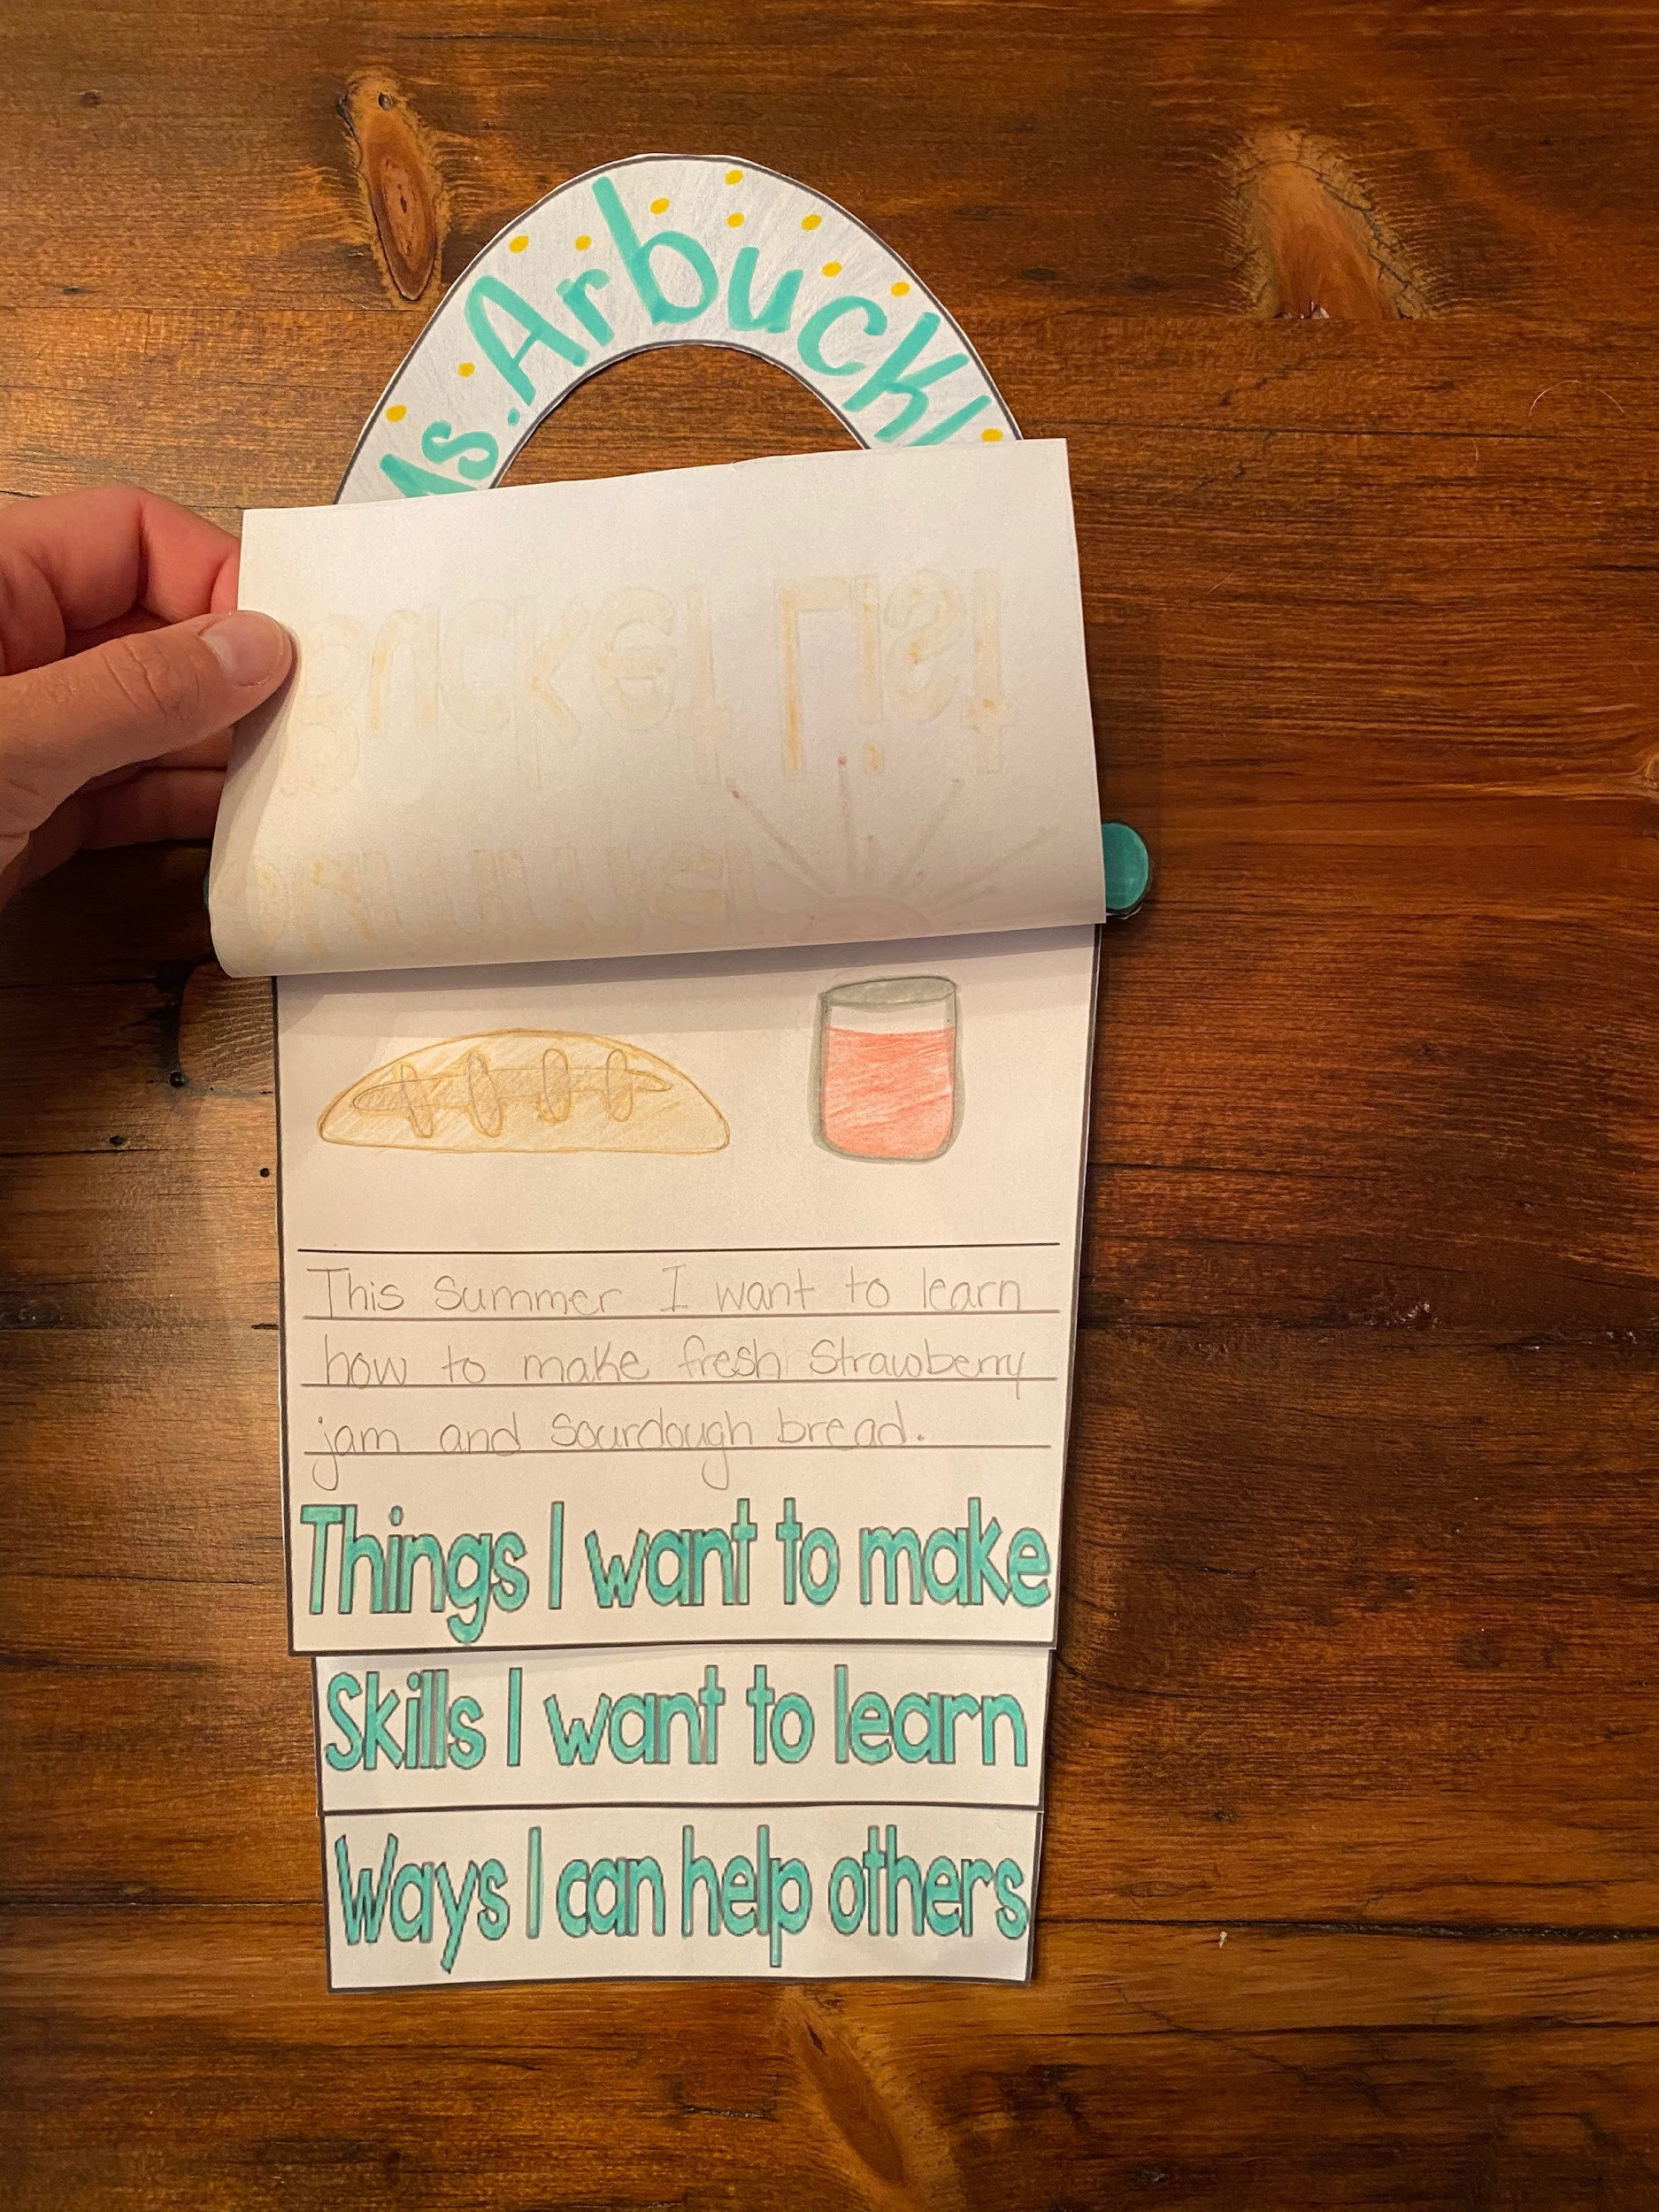 Ms. Arbuckl
This Summer I want to learn
how to make fresh Strawberry
jam and sourdough bread.
Things I want to make
Skills I want to learn
Ways I can help others